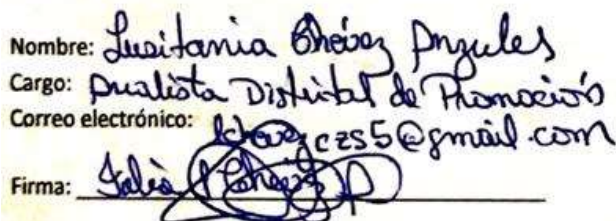 Nombre: Lusitania Chévez Anzules
Cargo: Analista Distrital de Promoción
Correo electrónico:
lchevezczs5@gmail.com
Firma: